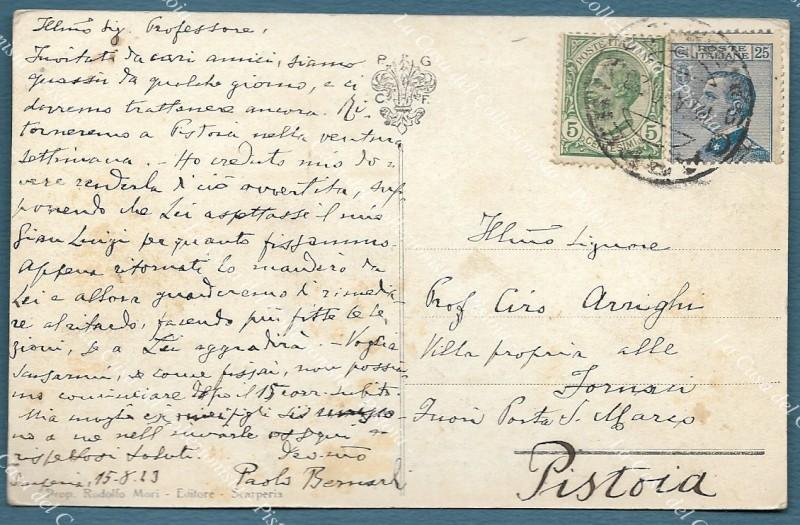 Illmo Sig. Professore,
Invitati da cari amici, siamo
quassù da qualche giorno, e ci
dovremo trattenere ancora. Ri-
torneremo a Pistoia nella ventura
settimana. - Ho creduto mio do-
vere renderla di ciò avvertita, sup-
ponendo che Lei aspettasse il mio
Gian Luigi per quanto fissammo.
Appena ritornati lo manderò da
Lei e allora guarderemo di rimedia-
re al ritardo, facendo più fitte le le-
zioni, se a Lei aggradirà. - Voglia
scusarmi, se come fissai, non possia-
mo cominciare dopo il 15 corr. subito.
Mia moglie e figli si
no a me nell'inviarle ossequi e
rispettosi saluti. Devmo
Scarperia, 15-8-23 Paolo Bernardi
Prop. Rodolfo Mori - Editore - Scarperia
P G
C F.
POSTE ITALIANE
5 5
CENTESIMI
POSTE
ITALIANE
25
Illmo Signore
Prof Ciro Arrighi
Villa propria alle
Fornaci
Fuori Porta S. Marco
Pistoia